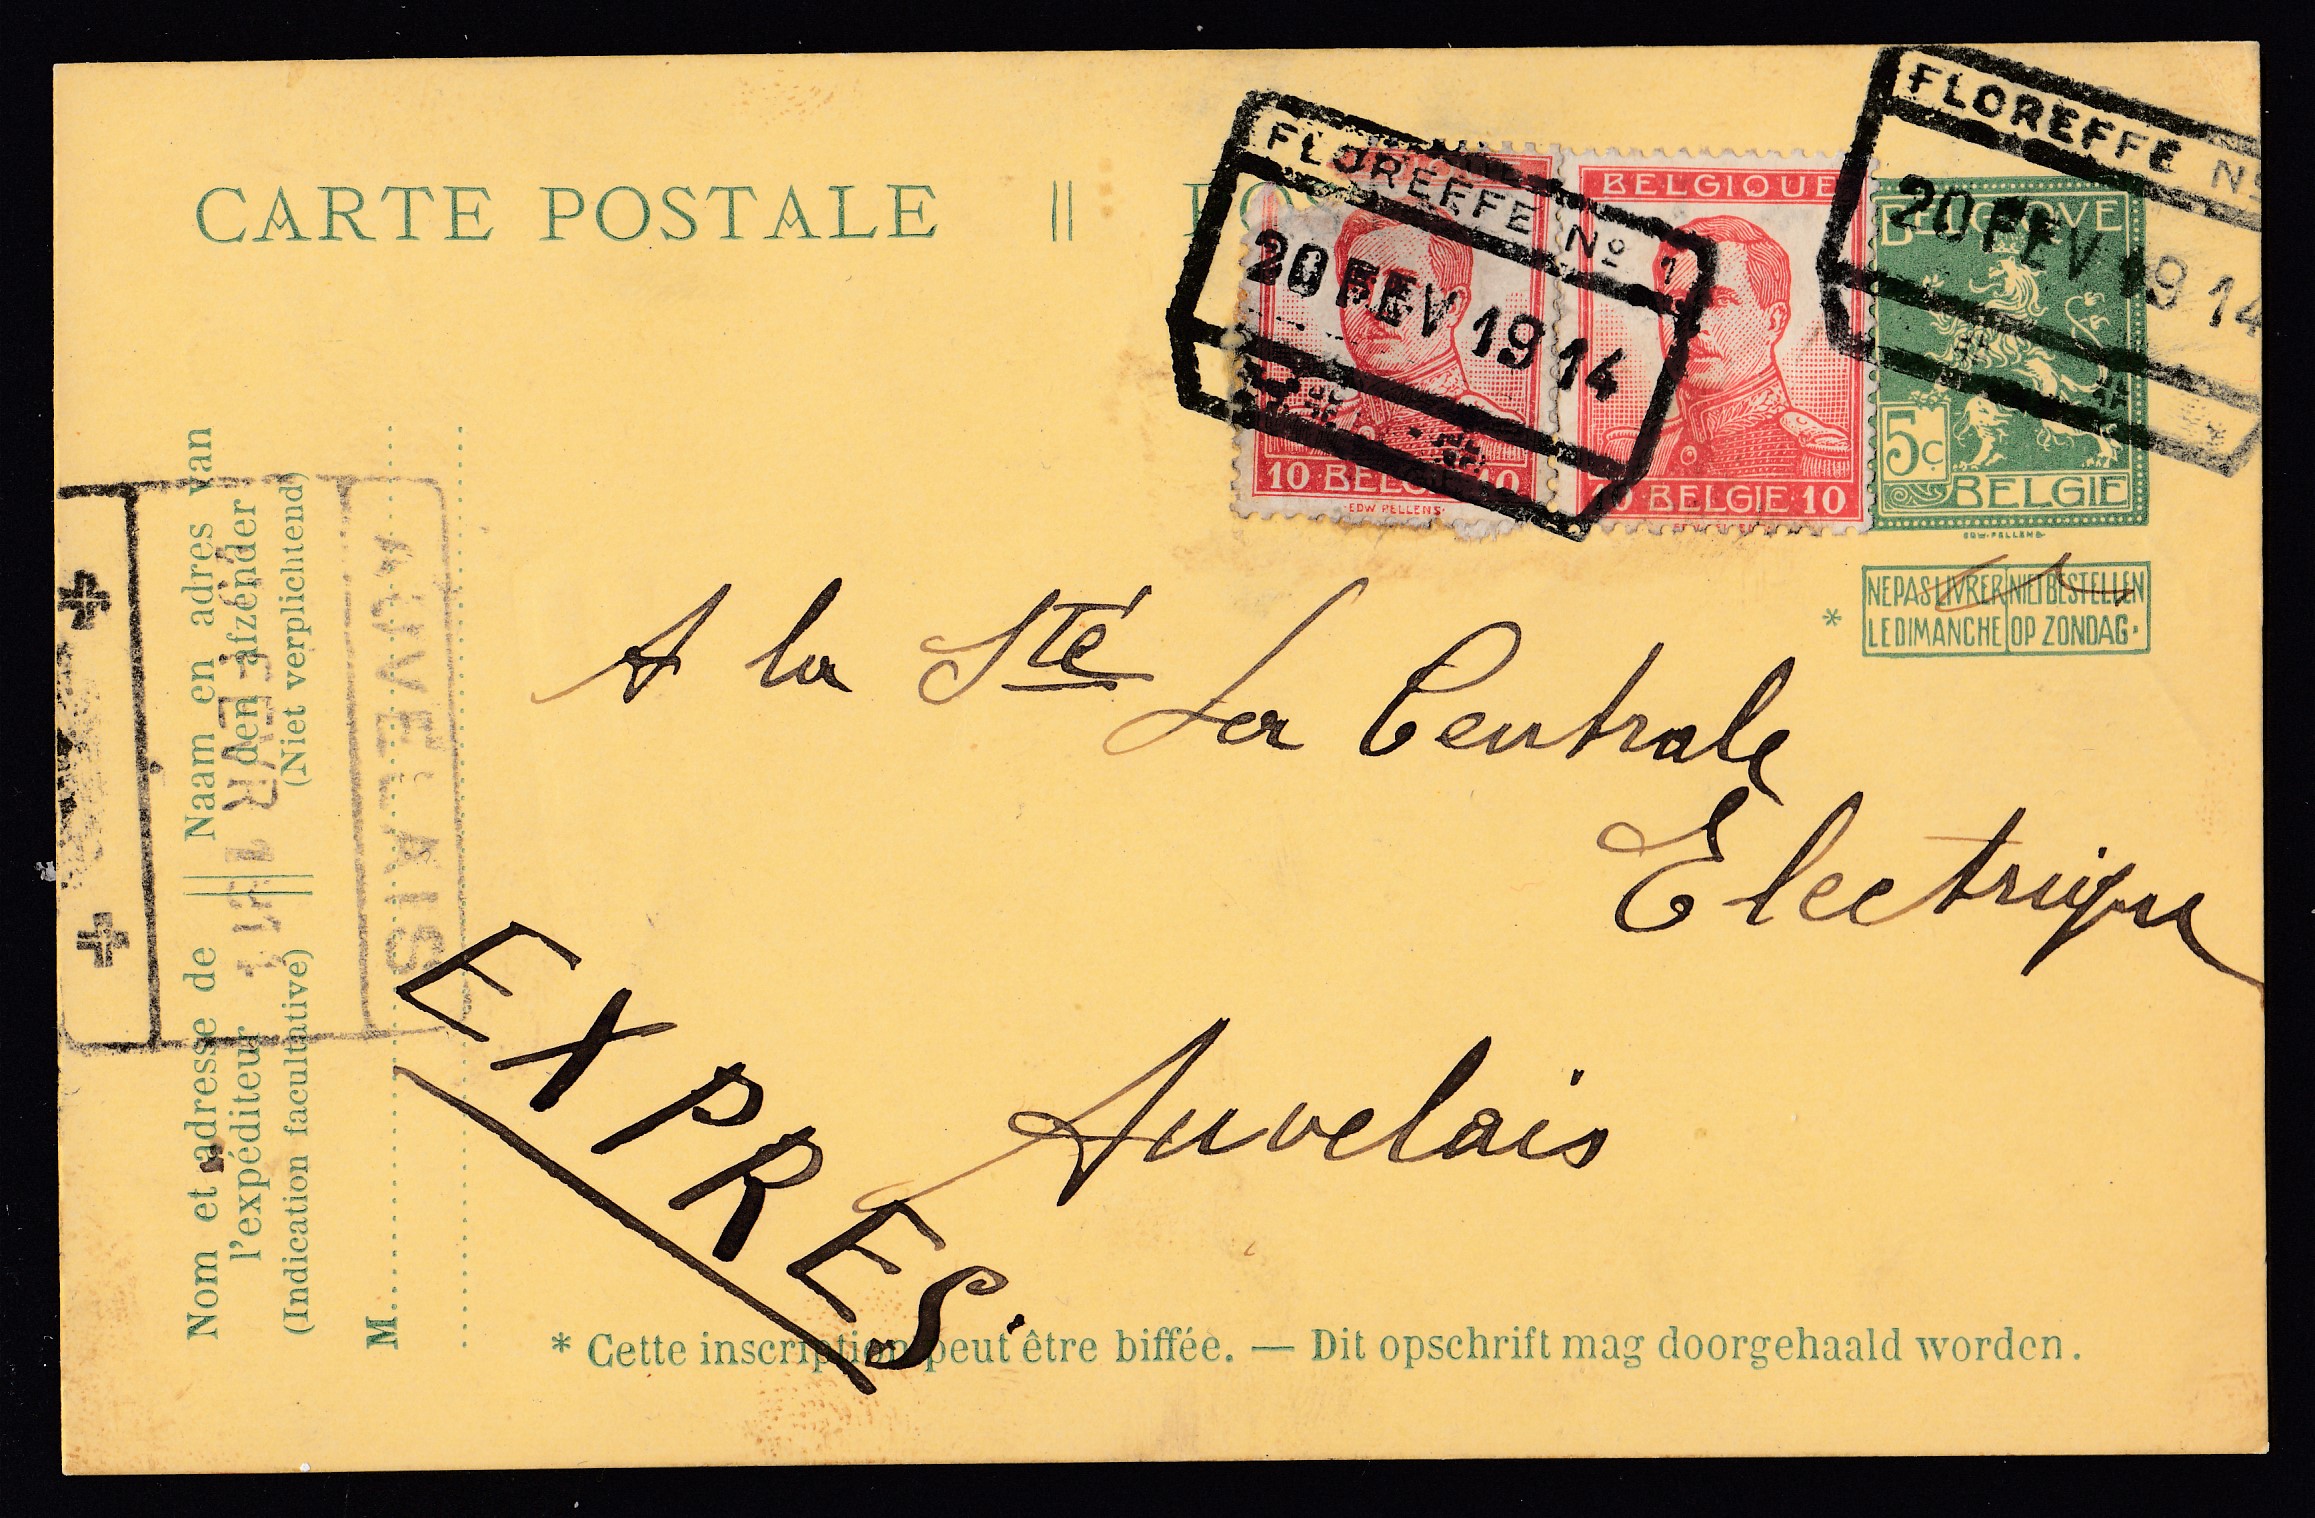 CARTE POSTALE ||
FLOREFFE Nº 1
20 FEV 1914
BELGIQUE
10 BELGIE 10
EDW PELLENS
BELGIQUE
10 BELGIE 10
FLOREFFE Nº
20 FEV 1914
BELGIQVE
5c
BELGIE
EDW. PELLENS
* NE PAS LIVRER NIET BESTELLEN
LE DIMANCHE OP ZONDAG.
A la Sté La Centrale
Electrique
Auvelais
EXPRES.
Nom et adresse de || Naam en adres van
l'expéditeur || den afzender
(Indication facultative) || (Niet verplichtend)
M
AUVELAIS
* Cette inscription peut être biffée. — Dit opschrift mag doorgehaald worden.